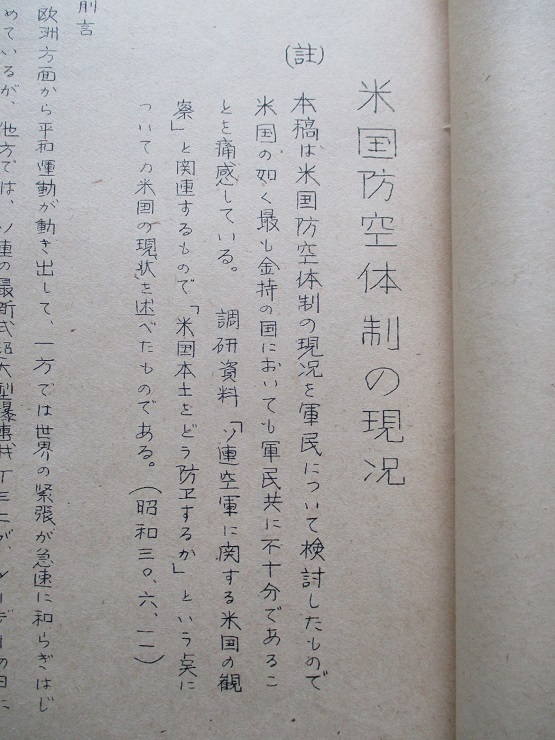 米国防空体制の現況
(註)
本稿は米国防空体制の現況を軍民について検討したもので
米国の如く最も金持の国においても軍民共に不十分であるこ
とを痛感している。 調研資料「ソ連空軍に関する米国の観
察」と関連するもので、「米国本土をどう防卫するか」という点に
ついての米国の現状を述べたものである。(昭和三〇、六、一一)
前言
欧洲方面から平和運動が動き出して、一方では世界の緊張が急速に和らぎはじ
めているが、他方では、ソ連の最新式超大型爆撃機